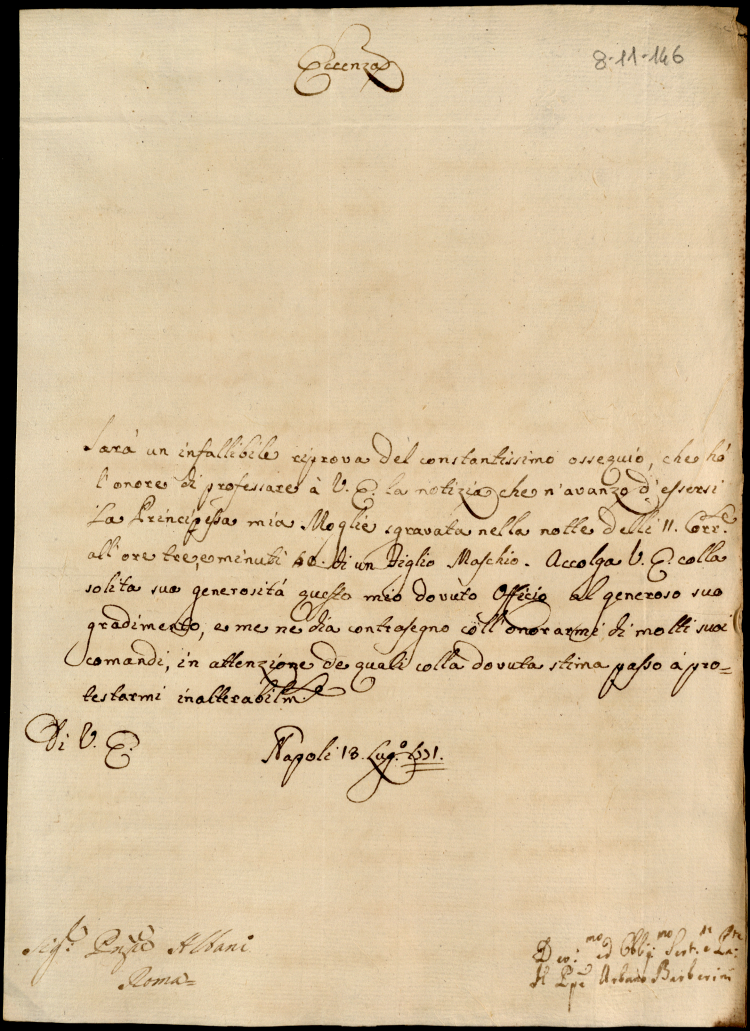 Eccenza
8-11-146
Sarà un infallibile riprova del constantissimo ossequio, che hò
l'onore di professare à V. E. la notizia che n'avanzo d'essersi
la Principessa mia Moglie sgravata nella notte delli 11. Corr.e
all'ore tre e minuti di un Figlio Maschio. Accolga V. E. colla
solita sua generosità questo mio dovuto Officio al generoso suo
gradimento, e me ne dia contrasegno coll'onorarmi di molti suoi
comandi, in attenzione de quali colla dovuta stima passo à pro=
testarmi inalterabilm.e
Di V. E.
Napoli 18. Lug.o
Sig.r Albani
Roma=
Dev.mo ed Obblig.mo Serv.re
Il Ppe Urbano Barberini